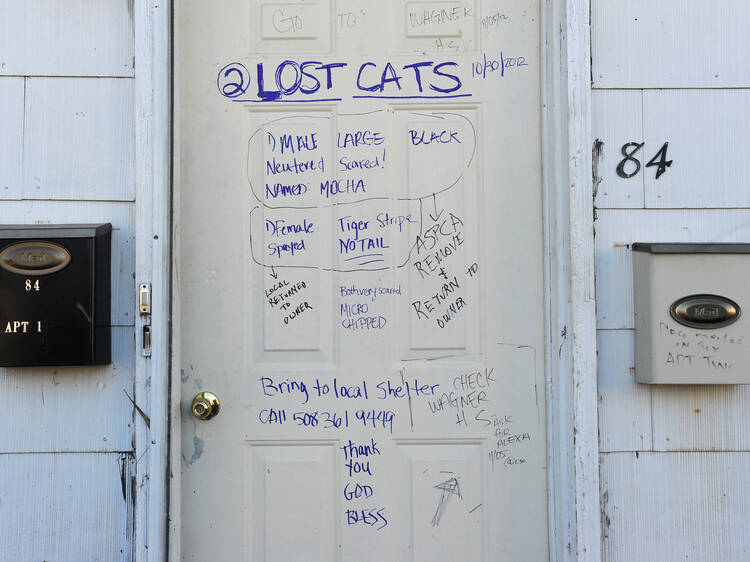 GO TO WAGNER 11/05/12
H.S
② LOST CATS 10/30/2012
1) MALE LARGE BLACK
Neutered Scared!
NAMED: MOCHA
1) Female Tiger Stripe
Spayed NO TAIL
LOCAL
RETURNED
TO
OWNER
Both very scared
MICRO
CHIPPED
ASPCA
REMOVE
&
RETURN TO
OWNER
Bring to local Shelter
CALL 508 361 9449
CHECK
WAGNER
H.S
ASK
FOR
ALEXA
11/05
Thank
You
GOD
BLESS
Mail
84
APT 1
84
Mail
Place
IN BOX
APT